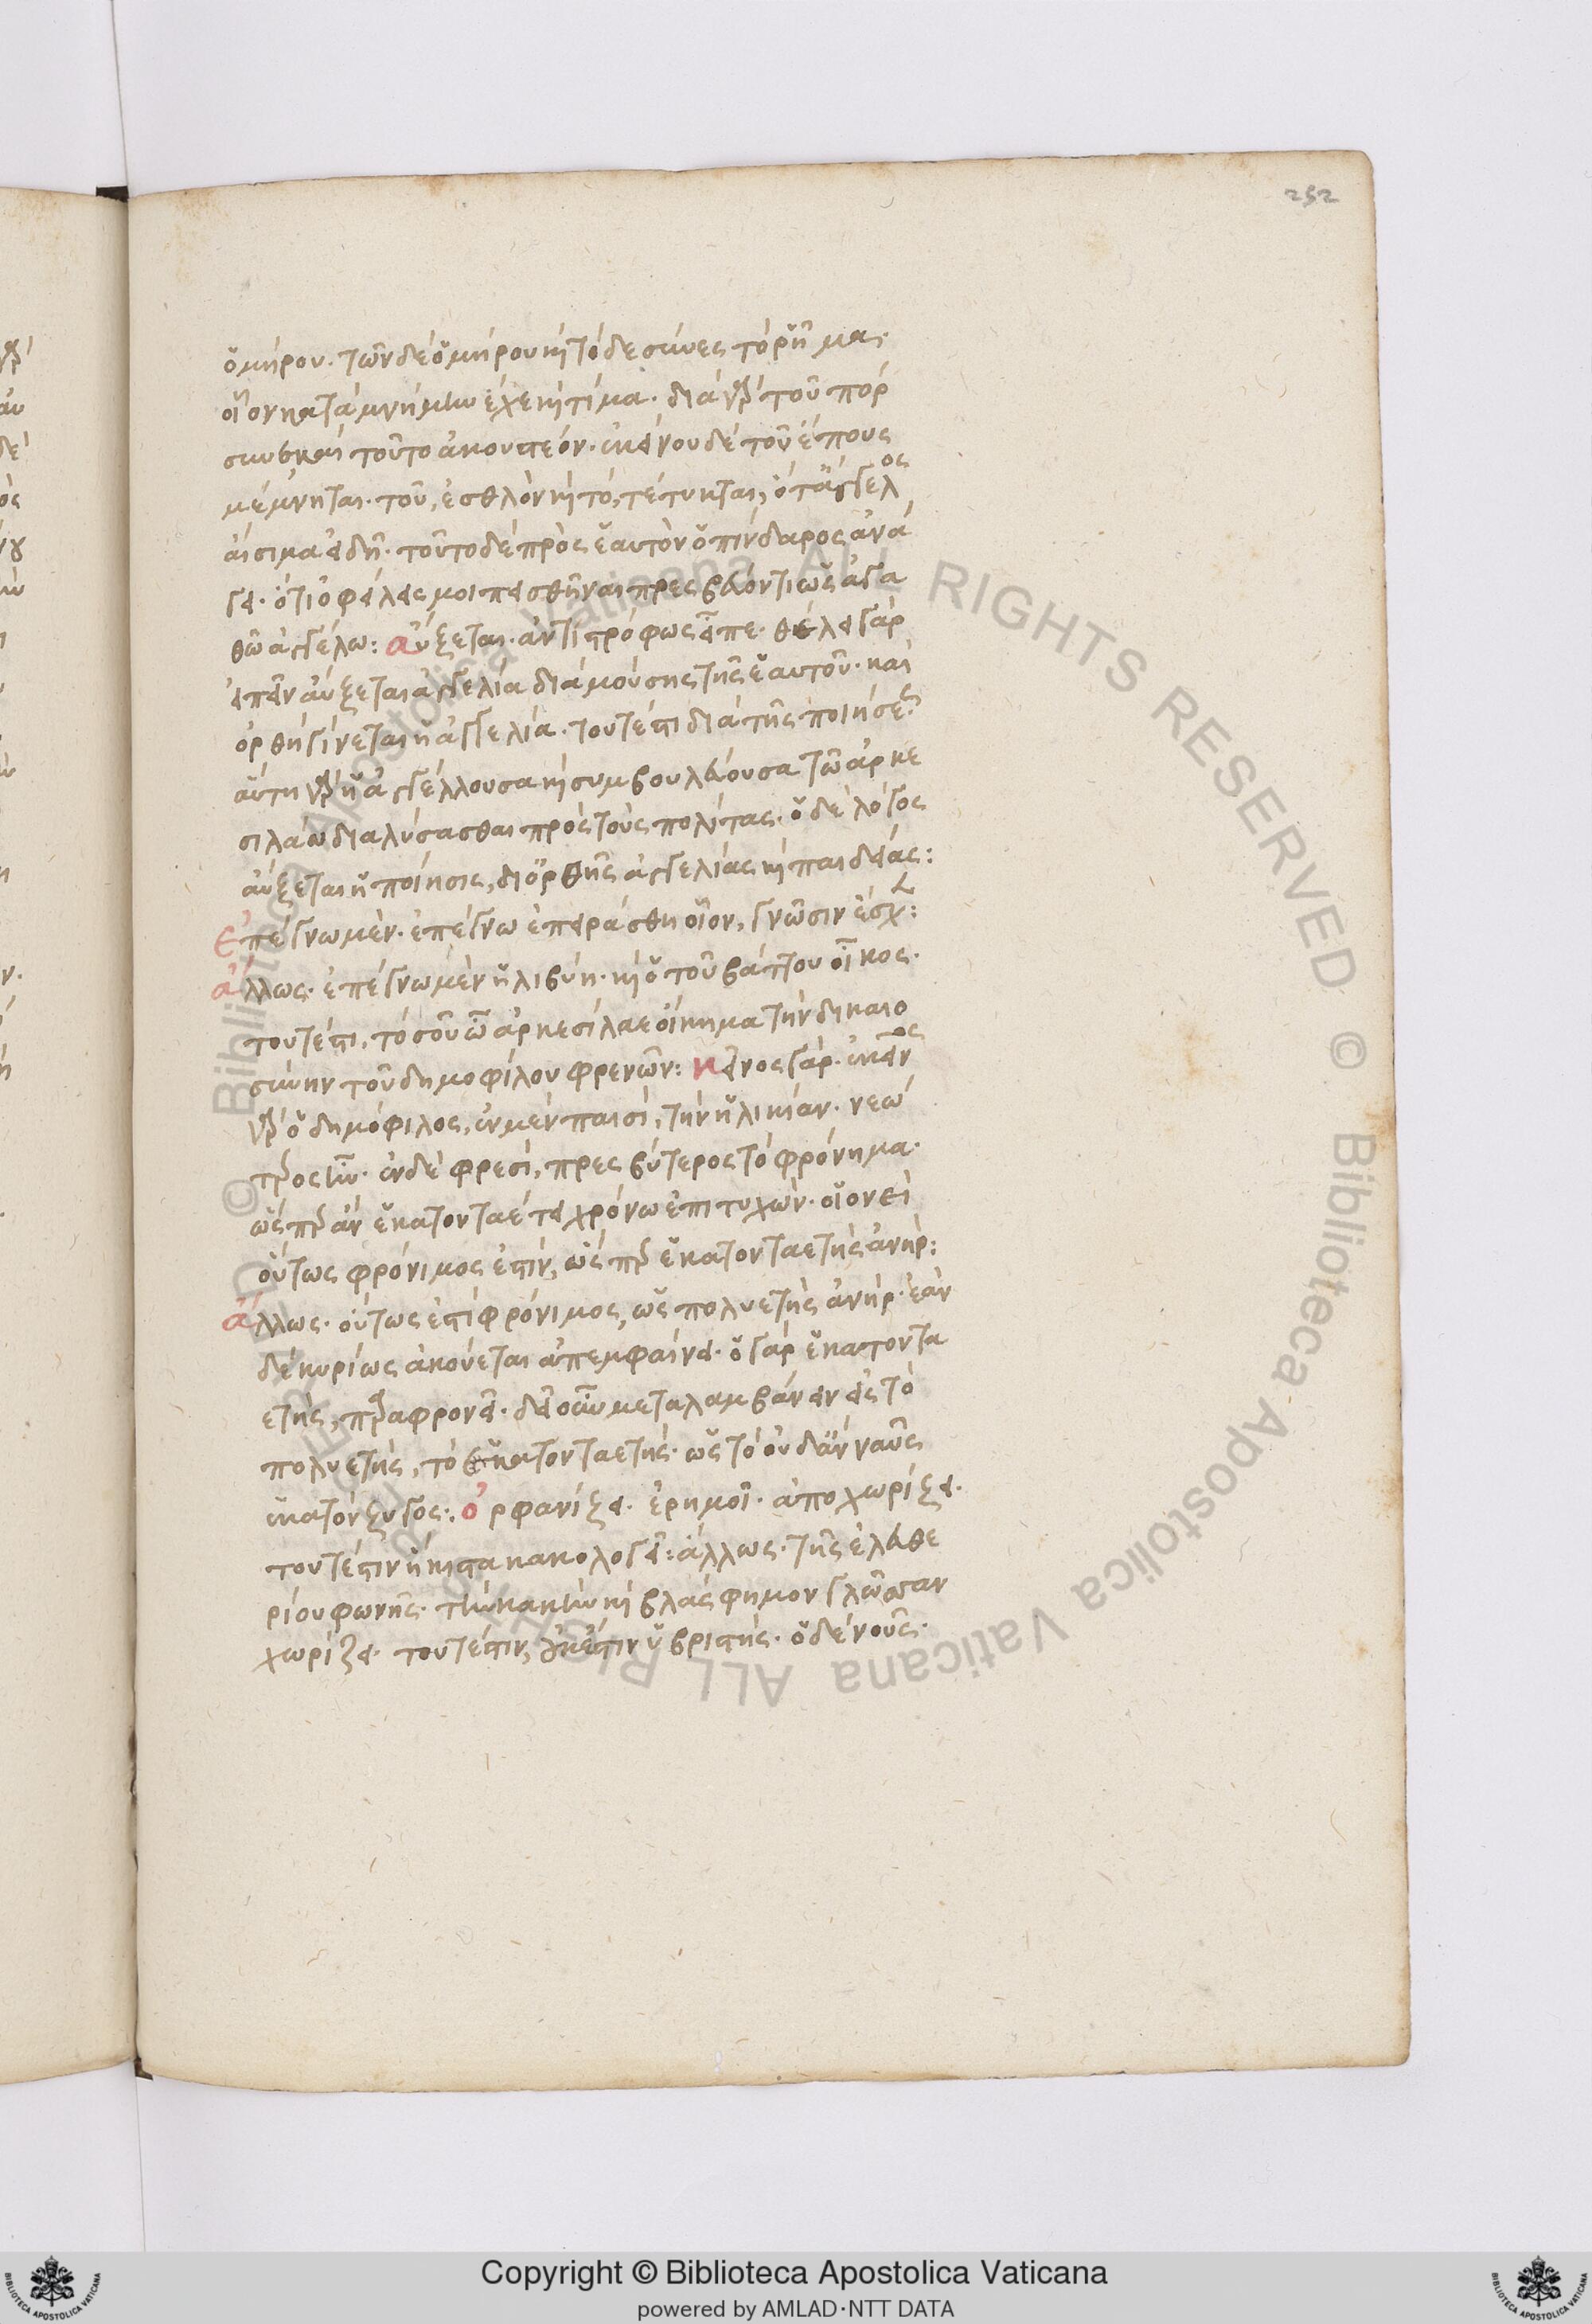 252
ὁμήρου. τῶν δὲ ὁμήρου καὶ τόδε σύνες τὸ ῥῆμα.
οἷον κατὰ μνήμην ἔχε καὶ τίμα. διὰ γὰρ τοῦ πόρ
συνε καὶ τοῦτο ἀκουστέον. ἐκείνου δὲ τοῦ ἔπους
μέμνηται. τοῦ, ἐσθλὸν καὶ τὸ, τέτυκται, ὅτ' ἄγγελος
αἴσιμα εἰδῆ. τοῦτο δὲ πρὸς ἑαυτὸν ὁ πίνδαρος ἀνά
γει. ὅτι ὀφείλεις μοι πεισθῆναι πρεσβεύοντι ὡς ἀγα
θῶ ἀγγέλω: αὔξεται. ἀντιστρόφως εἶπε. θέλει γὰρ
εἰπεῖν αὔξεται ἀγγελία διὰ μούσης τῆς ἑαυτοῦ. καὶ
ὀρθὴ γίνεται ἡ ἀγγελία. τουτέστι διὰ τῆς ποιήσεως
αὕτη γὰρ ἡ ἀγγέλλουσα καὶ συμβουλεύουσα τῶ ἀρκε
σιλάω διαλύσασθαι πρὸς τοὺς πολίτας. ὁ δὲ λόγος
αὔξεται ἡ ποίησις, δι' ὀρθῆς ἀγγελίας καὶ παιδείας:
ἐπέγνω μὲν. ἐπέγνω ἐπειράσθη οἷον, γνῶσιν ἔσχεν:
ἄλλως. ἐπέγνω μὲν ἡ λιβύη. καὶ ὁ τοῦ βάττου οἶκος.
τουτέστι, τὸ σοῦ ὦ ἀρκεσίλαε οἴκημα τὴν δικαιο
σύνην τοῦ δημοφίλου φρενῶν: κεῖνος γάρ. ἐκεῖνος
γὰρ ὁ δημόφιλος, ἐν μὲν παισὶ, τὴν ἡλικίαν. νεώ
τερος ἦν. ἐν δὲ φρεσὶ, πρεσβύτερος τὸ φρόνημα.
ὥσπερ ἂν ἑκατονταέτει χρόνω ἐπιτυχών. οἱονεὶ
οὕτως φρόνιμος ἐστὶν, ὥσπερ ἑκατονταετὴς ἀνήρ:
ἄλλως. οὕτως ἐστὶ φρόνιμος, ὡς πολυετὴς ἀνήρ. ἐὰν
δὲ κυρίως ἀκούεται ἀπεμφαίνει. ὁ γὰρ ἑκατοντα
ετὴς, παραφρονεῖ. δεῖ οὖν μεταλαμβάνειν εἰς τὸ
πολυετὴς, τὸ ἑκατονταετής. ὡς τὸ οὐδ' ἂν ναῦς
ἑκατόνζυγος: ὀρφανίζει. ἐρημοῖ. ἀποχωρίζει.
τουτέστιν ἥκιστα κακολογεῖ: ἄλλως. τῆς ἐλευθε
ρίου φωνῆς. τὴν κακὴν καὶ βλάσφημον γλῶσσαν
χωρίζει. τουτέστιν, οὐκ ἔστιν ὑβριστής. ὁ δὲ νοῦς.
Copyright © Biblioteca Apostolica Vaticana
powered by AMLAD·NTT DATA